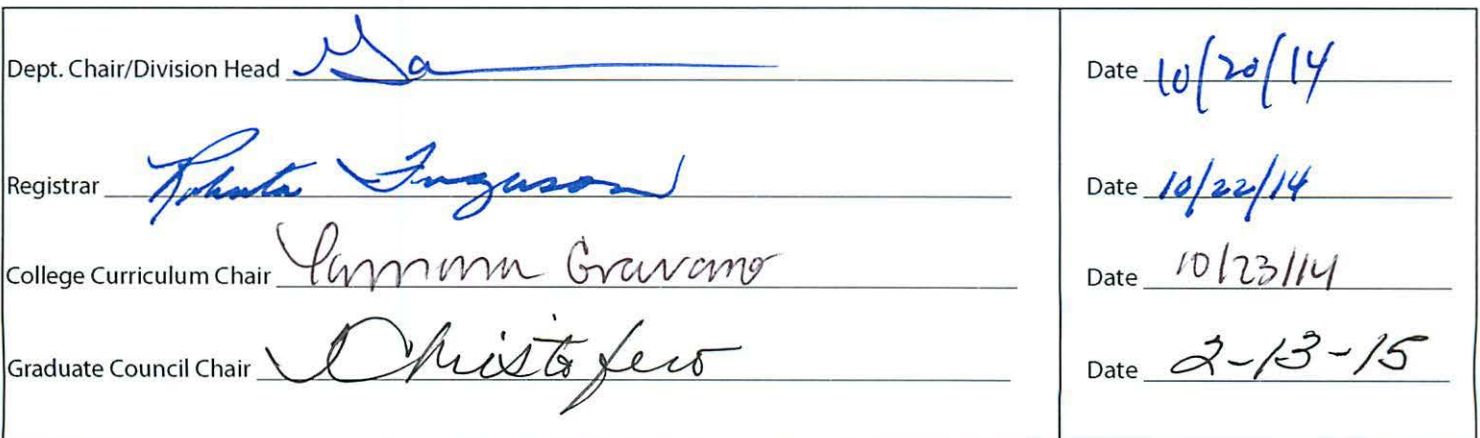 Dept. Chair/Division Head Date 10/20/14
Registrar Roberta Ferguson Date 10/22/14
College Curriculum Chair Gravano Date 10/23/14
Graduate Council Chair Christofero Date 2-13-15